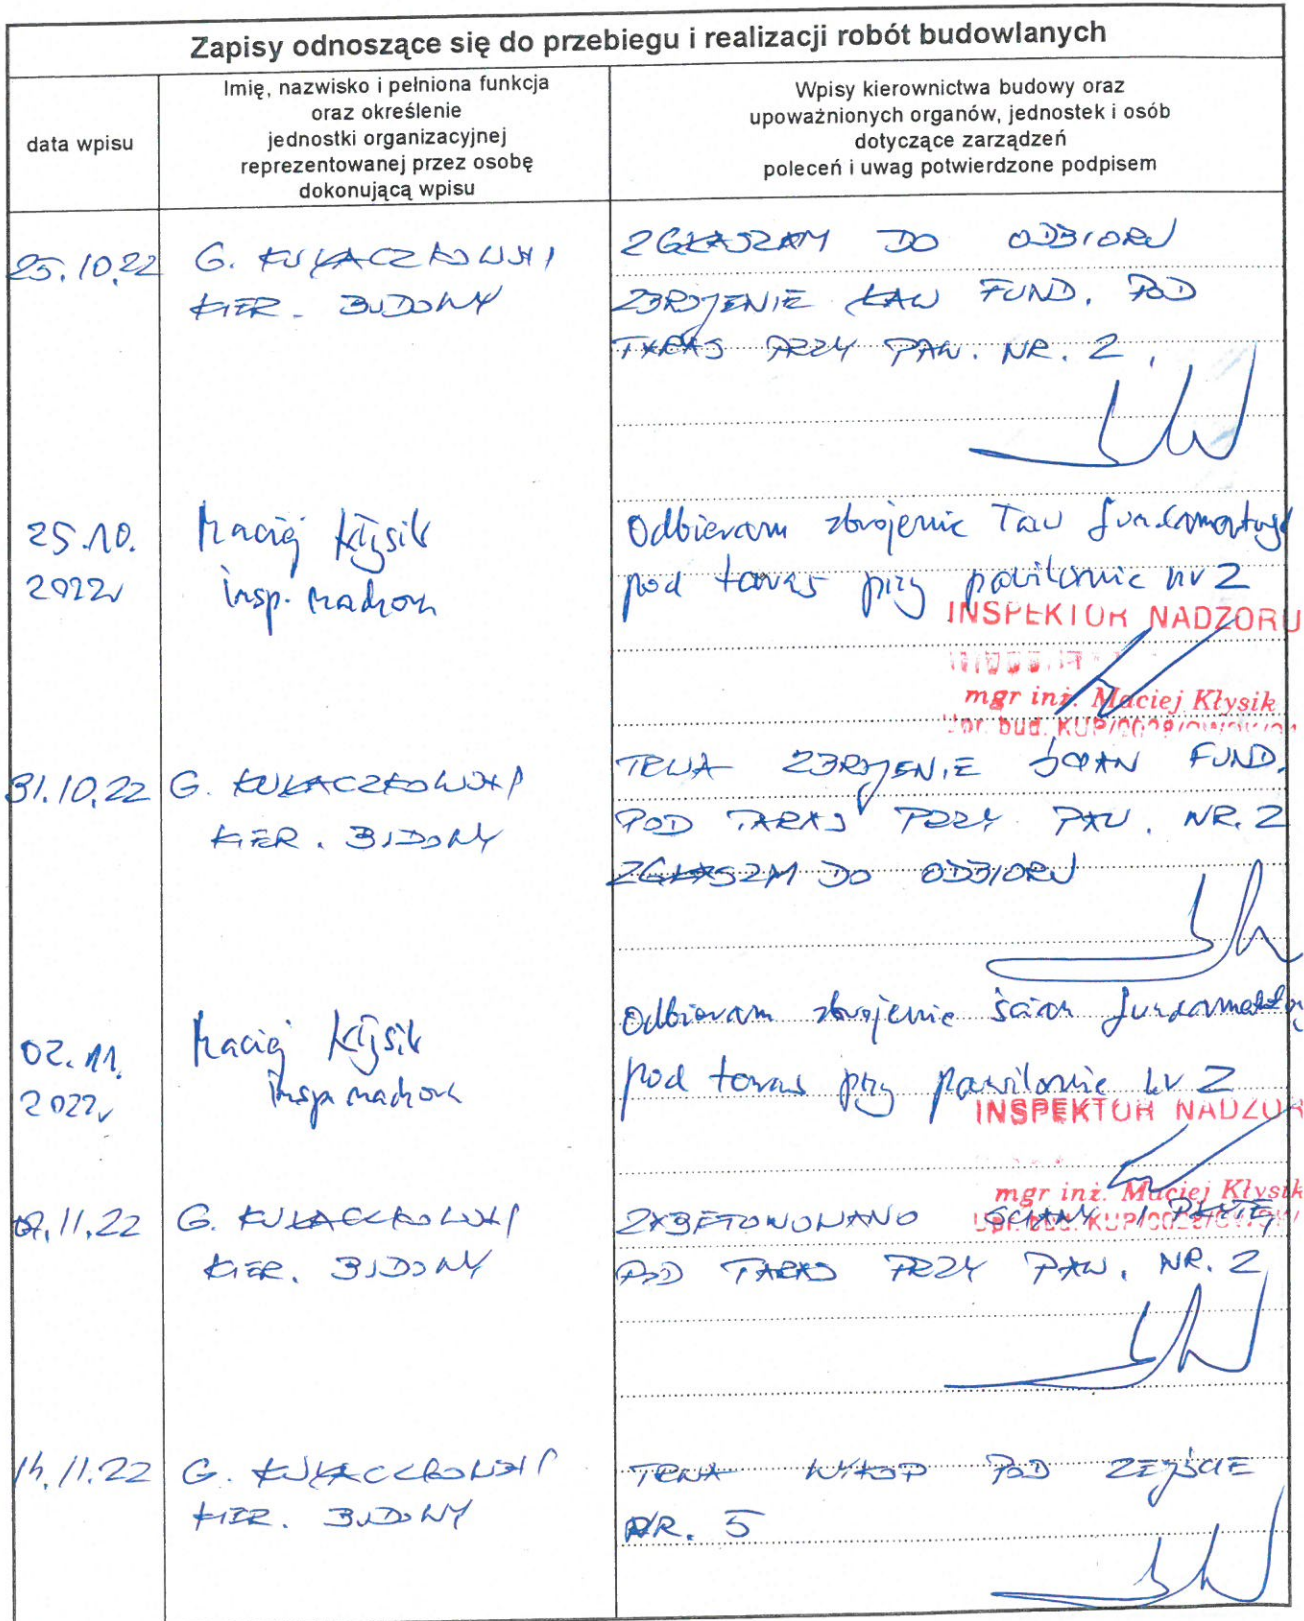 Zapisy odnoszące się do przebiegu i realizacji robót budowlanych
data wpisu
Imię, nazwisko i pełniona funkcja
oraz określenie
jednostki organizacyjnej
reprezentowanej przez osobę
dokonującą wpisu
Wpisy kierownictwa budowy oraz
upoważnionych organów, jednostek i osób
dotyczące zarządzeń
poleceń i uwag potwierdzone podpisem
25.10.22
G.
KIER. BUDOWY
ZGŁASZAM DO ODBIORU
ZBROJENIE ŁAW FUND. POD
TARAS PRZY PAW. NR. 2.
25.10.
2022r
Maciej Kłysik
insp. nadzoru
Odbieram zbrojenie ław
pod taras przy pawilonie nr 2
INSPEKTOR NADZORU
mgr inż. Maciej Kłysik
31.10.22
G.
KIER. BUDOWY
TRWA ZBROJENIE ŚCIAN FUND.
POD TARAS PRZY PAW. NR. 2
ZGŁASZM DO ODBIORU
02.11.
2022r
Maciej Kłysik
insp. nadzoru
Odbieram zbrojenie ścian
pod taras przy pawilonie nr 2
INSPEKTOR NADZOR
mgr inż. Maciej Kłysik
.11.22
G.
KIER. BUDOWY
ZABETONOWANO ŚCIANY I PŁYTĘ
POD TARAS PRZY PAW. NR. 2
14.11.22
G.
KIER. BUDOWY
TRWA WYKOP POD ZEJŚCIE
NR. 5